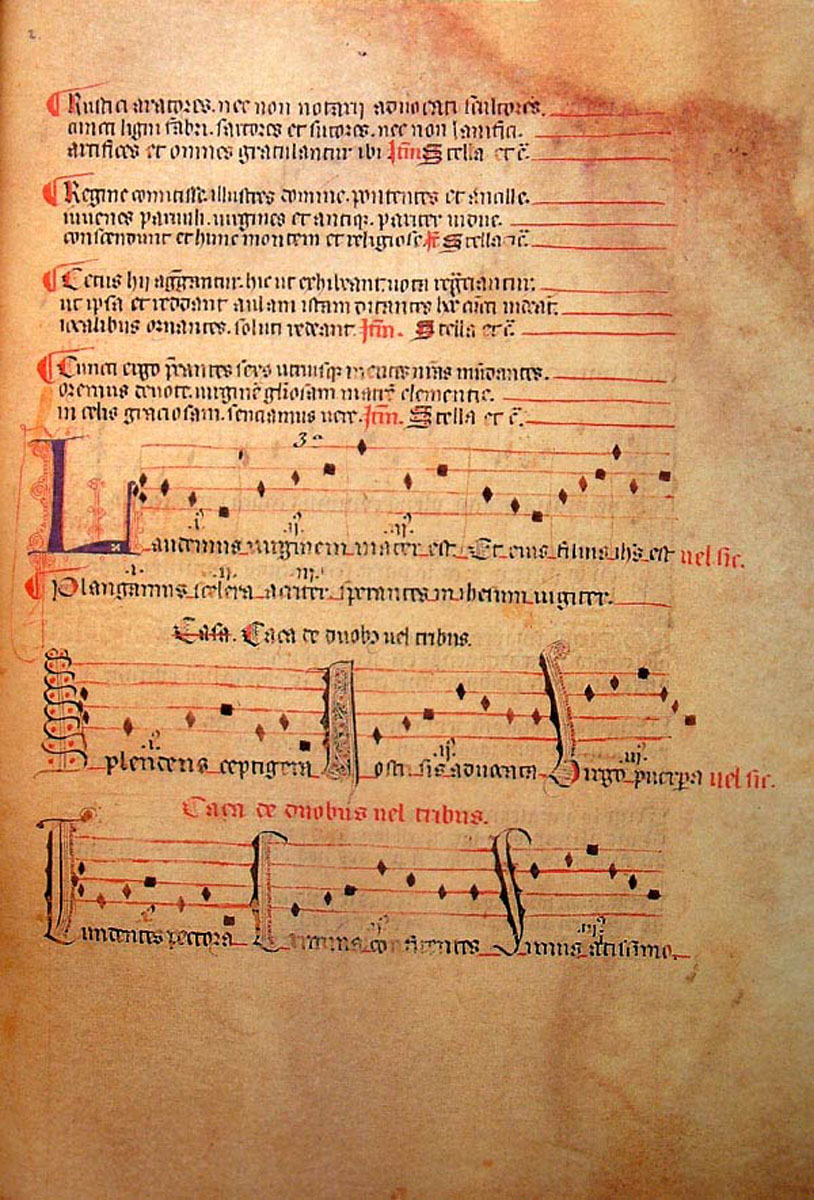 2.
Rustici aratores. nec non notarij advocati scultores.
cuncti ligni fabri. sartores et sutores. nec non lanifici.
artifices et omnes gratulantur ibi Itm̄ Stella et c̄.
Regine comitisse. illustres domine. potentes et ancille.
iuvenes parvuli. virgines et antiq̄. pariter vidue.
conscendunt et hunc montem et religiose. Stella et c̄.
Cetus hij aggregantur. hic ut exhibeant vota regracientur.
ut ipsa et reddant aulam istam ditantes hec cuncti videāt.
iocalibus ornantes. soluti redeant. Itm̄. Stella et c̄.
Cuncti ergo p̄cantes sexs utriusq. mentes nr̄as mūdantes.
oremus devote. virginē gl̄iosam matrē clementie.
in celis graciosam. senciamus vere. Itm̄. Stella et c̄.
3ª
.i. .ij. .iij.
Laudemus virginem mater est Et eius filius ihs̄ est vel sic.
.i. .ij. .iij.
Plangamus scelera acriter sperantes in ihesum iugiter.
Casa. Caca de duobꝫ vel tribus.
.i. .ij. .iij.
Splendens ceptigera Nostri sis advocata Virgo puerpera vel sic.
Caca de duobus vel tribus.
.i. .ij. .iij.
Tundentes pectora Crimina confitentes Simus altissimo.